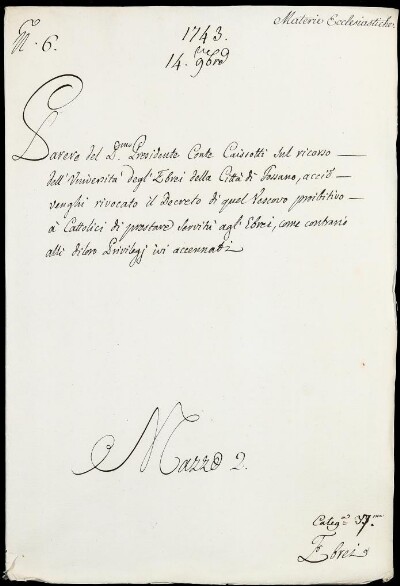 Materie Ecclesiastiche.
N. 6.
1743.
14. 9bre
Parere del P.mo Presidente Conte Caissotti sul ricorso
dell'Università degl'Ebrei della Città di Fossano, acciò
venghi rivocato il Decreto di quel Vescovo proibitivo
à Cattolici di prestare servitù agl'Ebrei, come contrario
alli diloro Privilegj ivi accennati
Mazzo 2.
Categ.a 37.ma
Ebrei